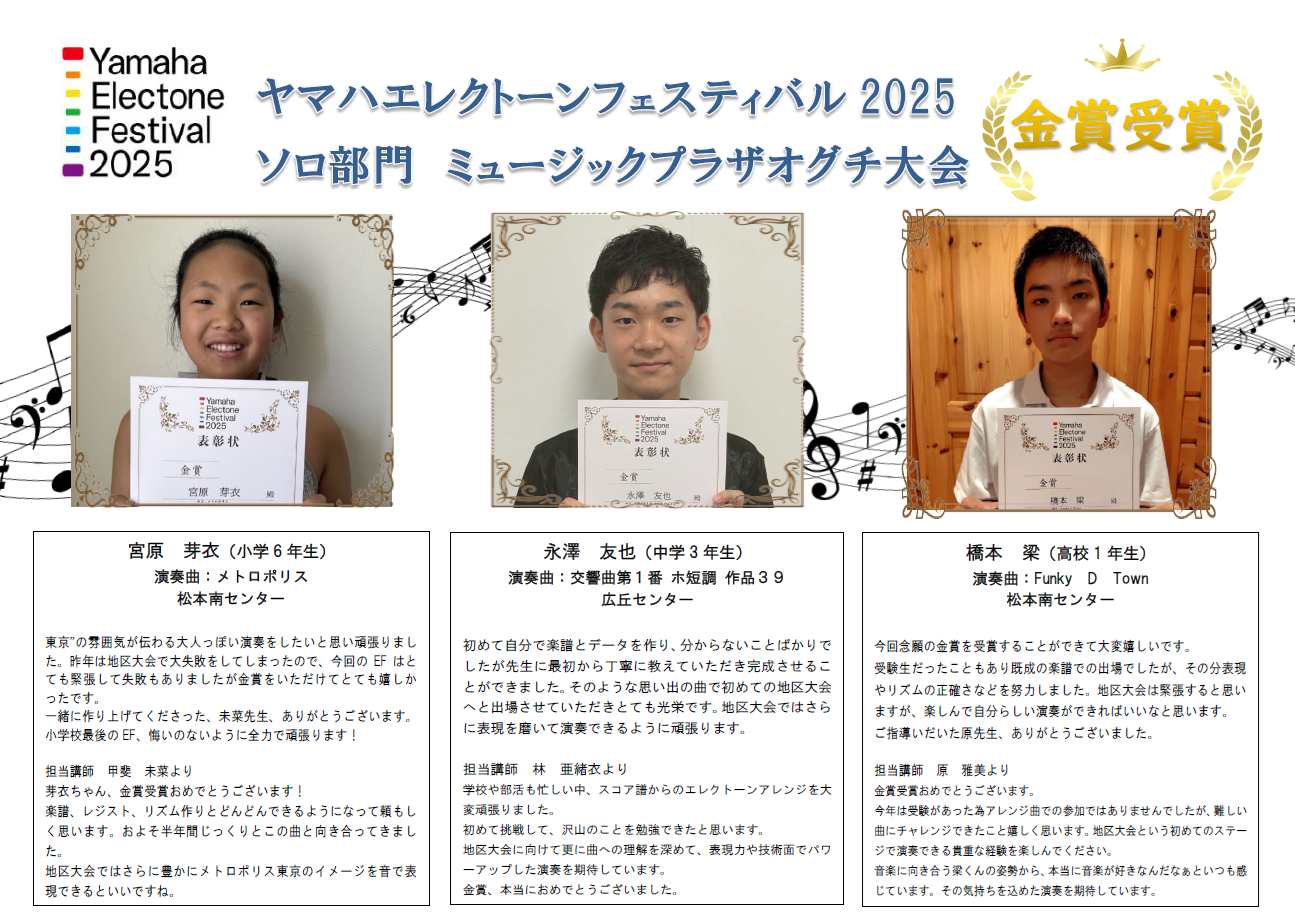 Yamaha
Electone
Festival
2025
ヤマハエレクトーンフェスティバル 2025
ソロ部門　ミュージックプラザオグチ大会
金賞受賞
Yamaha
Electone
Festival
2025
表彰状
金賞
宮原　芽衣　殿
Yamaha
Electone
Festival
2025
表彰状
金賞
永澤　友也　殿
Yamaha
Electone
Festival
2025
表彰状
金賞
橋本　梁　殿
宮原　芽衣（小学６年生）
演奏曲：メトロポリス
松本南センター
東京”の雰囲気が伝わる大人っぽい演奏をしたいと思い頑張りまし
た。昨年は地区大会で大失敗をしてしまったので、今回の EF はと
ても緊張して失敗もありましたが金賞をいただけてとても嬉しか
ったです。
一緒に作り上げてくださった、未菜先生、ありがとうございます。
小学校最後のEF、悔いのないように全力で頑張ります！
担当講師　甲斐　未菜より
芽衣ちゃん、金賞受賞おめでとうございます！
楽譜、レジスト、リズム作りとどんどんできるようになって頼もし
く思います。およそ半年間じっくりとこの曲と向き合ってきまし
た。
地区大会ではさらに豊かにメトロポリス東京のイメージを音で表
現できるといいですね。
永澤　友也（中学３年生）
演奏曲：交響曲第１番 ホ短調 作品３９
広丘センター
初めて自分で楽譜とデータを作り、分からないことばかりで
したが先生に最初から丁寧に教えていただき完成させるこ
とができました。そのような思い出の曲で初めての地区大会
へと出場させていただきとても光栄です。地区大会ではさら
に表現を磨いて演奏できるように頑張ります。
担当講師　林　亜緒衣より
学校や部活も忙しい中、スコア譜からのエレクトーンアレンジを大
変頑張りました。
初めて挑戦して、沢山のことを勉強できたと思います。
地区大会に向けて更に曲への理解を深めて、表現力や技術面でパワ
ーアップした演奏を期待しています。
金賞、本当におめでとうございました。
橋本　梁（高校１年生）
演奏曲：Funky　D　Town
松本南センター
今回念願の金賞を受賞することができて大変嬉しいです。
受験生だったこともあり既成の楽譜での出場でしたが、その分表現
やリズムの正確さなどを努力しました。地区大会は緊張すると思い
ますが、楽しんで自分らしい演奏ができればいいなと思います。
ご指導いだいた原先生、ありがとうございました。
担当講師　原　雅美より
金賞受賞おめでとうございます。
今年は受験があった為アレンジ曲での参加ではありませんでしたが、難しい
曲にチャレンジできたこと嬉しく思います。地区大会という初めてのステー
ジで演奏できる貴重な経験を楽しんでください。
音楽に向き合う梁くんの姿勢から、本当に音楽が好きなんだなぁといつも感
じています。その気持ちを込めた演奏を期待しています。